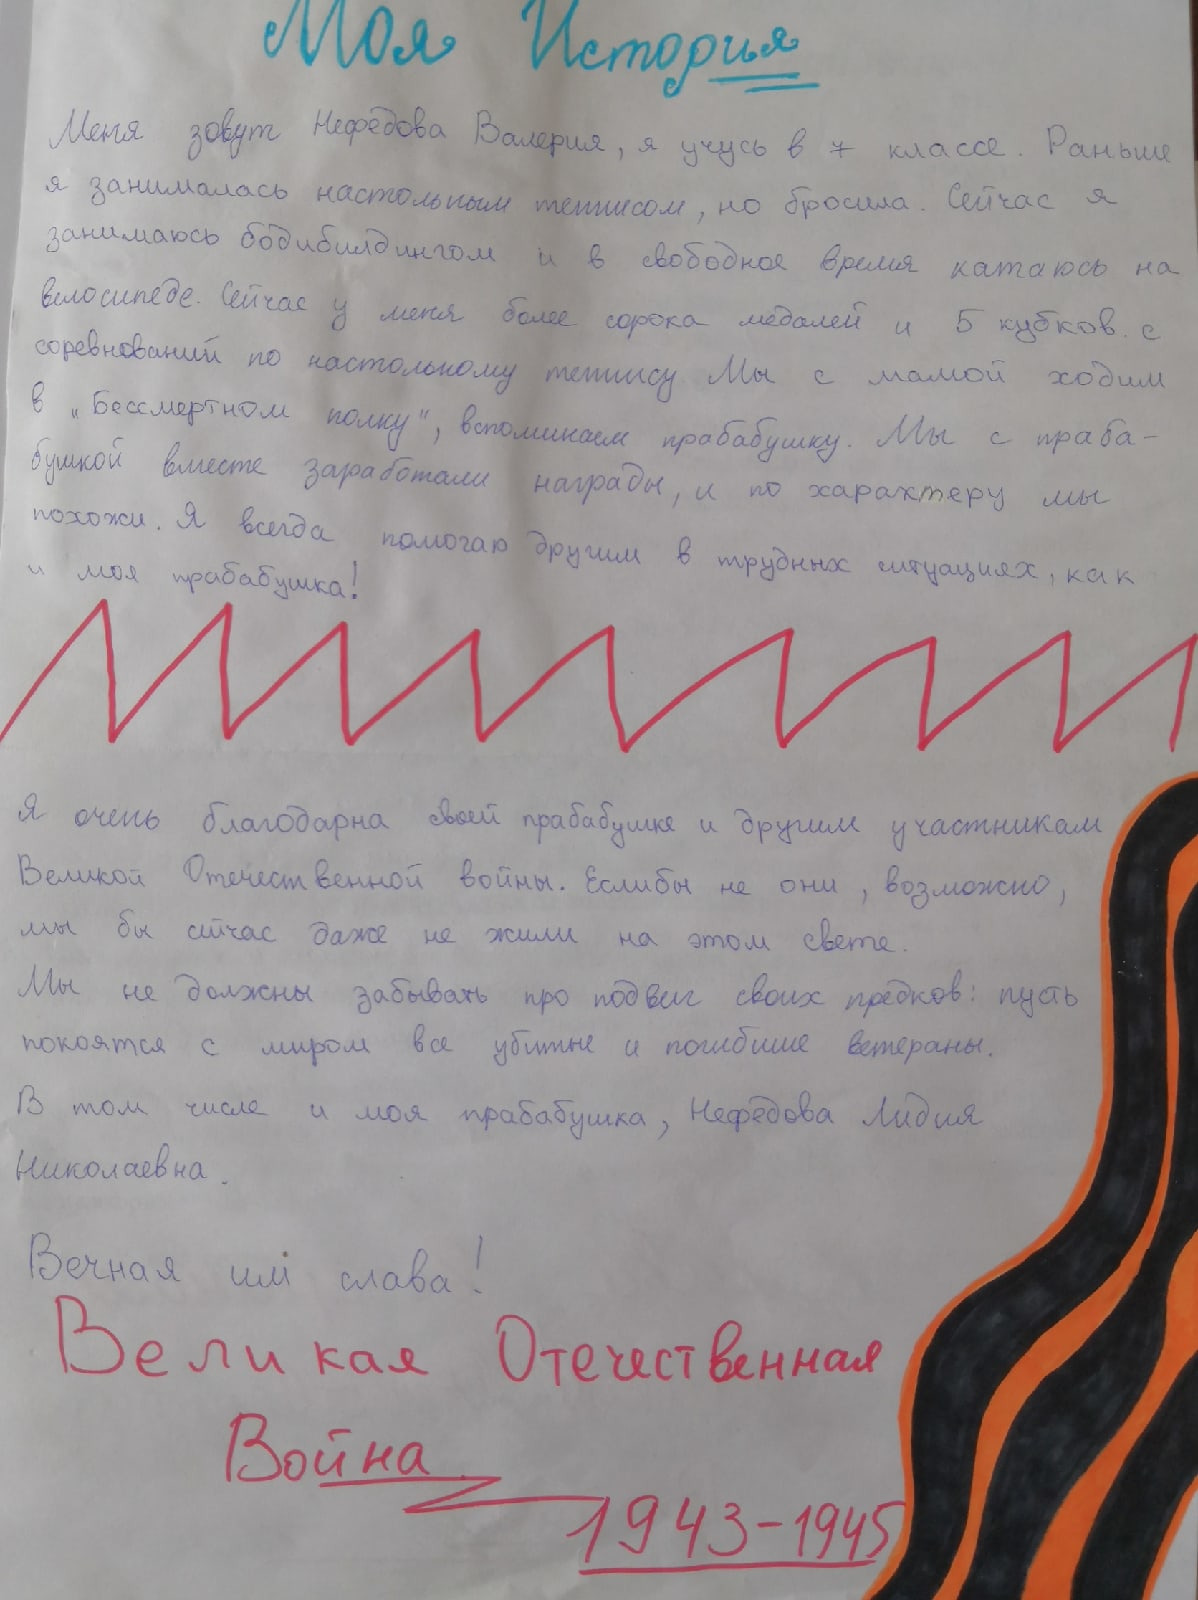 Моя История
Меня зовут Нефёдова Валерия, я учусь в 7 классе. Раньше
я занималась настольным теннисом, но бросила. Сейчас я
занимаюсь бодибилдингом и в свободное время катаюсь на
велосипеде. Сейчас у меня более сорока медалей и 5 кубков с
соревнований по настольному теннису Мы с мамой ходим
в „Бессмертном полку“, вспоминаем прабабушку. Мы с праба-
бушкой вместе заработали награды, и по характеру мы
похожи. Я всегда помогаю другим в трудных ситуациях, как
и моя прабабушка!
Я очень благодарна своей прабабушке и другим участникам
Великой Отечественной войны. Еслибы не они, возможно,
мы бы сейчас даже не жили на этом свете.
Мы не должны забывать про подвиг своих предков: пусть
покоятся с миром все убитые и погибшие ветераны.
В том числе и моя прабабушка, Нефёдова Лидия
Николаевна.
Вечная им слава!
Великая Отечественная
Война
1943-1945